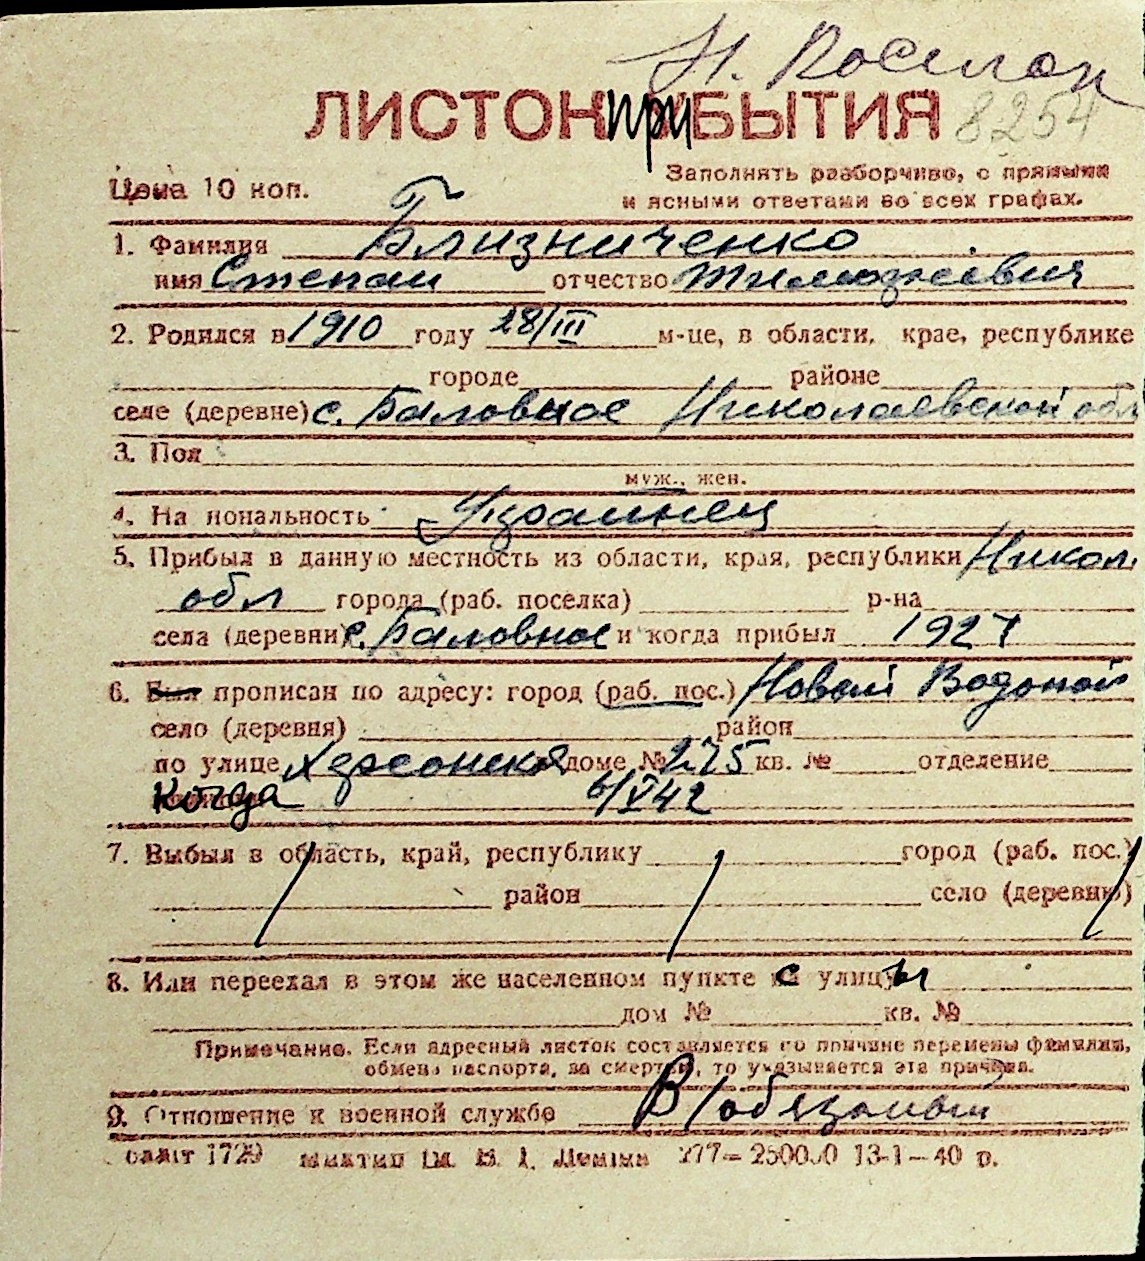 Н.
ЛИСТОК при БЫТИЯ 8254
Цена 10 коп. Заполнять разборчиво, с прямыми
и ясными ответами во всех графах.
1. Фамилия Близниченко
имя Степан отчество
2. Родился в 1910 году 28/III м-це, в области, крае, республике
городе районе
селе (деревне) с. Баловное Николаевской обл
3. Пол
муж., жен.
4. На иональность Украинец
5. Прибыл в данную местность из области, края, республики Никол.
обл города (раб. поселка) р-на
села (деревни) с. Баловное и когда прибыл 1927
6. Был прописан по адресу: город (раб. пос.) Новой Водопой
село (деревня) район
по улице Херсонская доме № 275 кв. № отделение
когда 6/V 42
7. Выбыл в область, край, республику город (раб. пос.)
район село (деревню)
8. Или переехал в этом же населенном пункте с улицы
дом № кв. №
Примечание. Если адресный листок составляется по причине перемены фамилии,
обмена паспорта, за смертью, то указывается эта причина.
9. Отношение к военной службе В/обязаный
1729 277— 13-1—40 р.